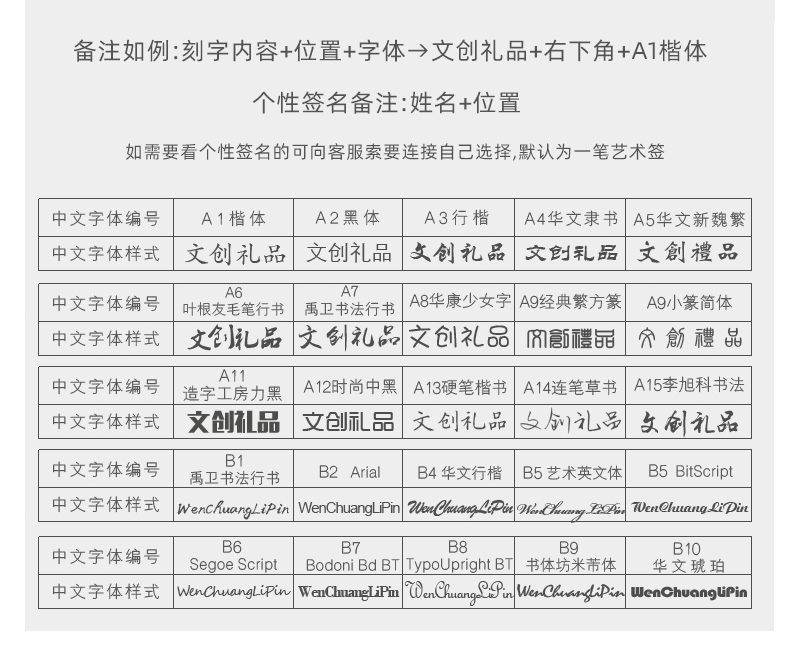 备注如例:刻字内容+位置+字体→文创礼品+右下角+A1楷体
个性签名备注:姓名+位置
如需要看个性签名的可向客服索要连接自己选择,默认为一笔艺术签
中文字体编号 A1楷体 A2黑体 A3行楷 A4华文隶书 A5华文新魏繁
中文字体样式 文创礼品 文创礼品 文创礼品 文创礼品 文創禮品
中文字体编号 A6叶根友毛笔行书 A7禹卫书法行书 A8华康少女字 A9经典繁方篆 A9小篆简体
中文字体样式 文创礼品 文创礼品 文创礼品 文創禮品 文創禮品
中文字体编号 A11造字工房力黑 A12时尚中黑 A13硬笔楷书 A14连笔草书 A15李旭科书法
中文字体样式 文创礼品 文创礼品 文创礼品 文创礼品 文创礼品
中文字体编号 B1禹卫书法行书 B2 Arial B4 华文行楷 B5 艺术英文体 B5 BitScript
中文字体样式 WenChuangLiPin WenChuangLiPin WenChuangLiPin WenChuangLiPin WenChuangLiPin
中文字体编号 B6 Segoe Script B7 Bodoni Bd BT B8 TypoUpright BT B9 书体坊米芾体 B10 华文琥珀
中文字体样式 WenChuangLiPin WenChuangLiPin WenChuangLiPin WenChuangLiPin WenChuangLiPin